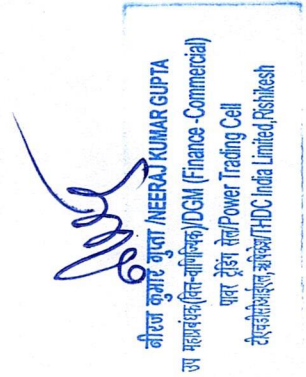 नीरज कुमार गुप्ता /NEERAJ KUMAR GUPTA
उप महाप्रबंधक(वित्त-वाणिज्यिक)/DGM (Finance -Commercial)
पावर ट्रेडिंग सेल/Power Trading Cell
टीएचडीसीआईएल,ऋषिकेश/THDC India Limited,Rishikesh